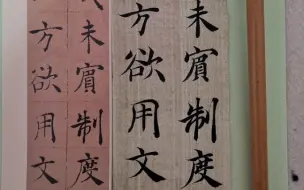 未賓制度
方欲用文
未賓制度
方欲用文